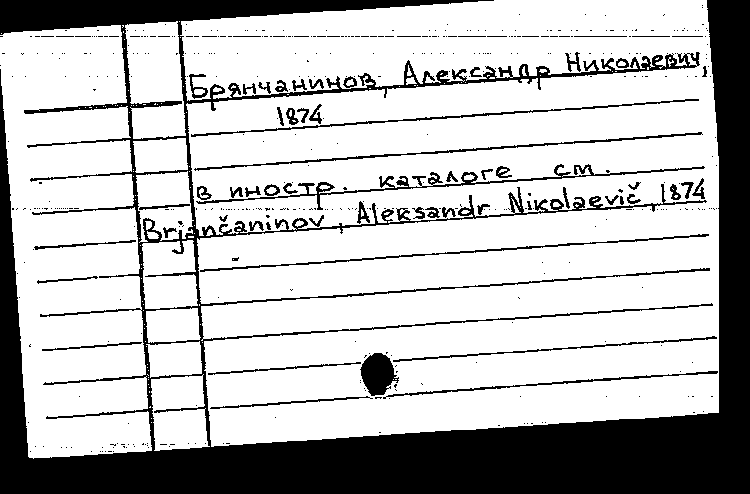 Брянчанинов, Александр Николаевич,
1874
в иностр. каталоге см.
Brjančaninov, Aleksandr Nikolaevič, 1874